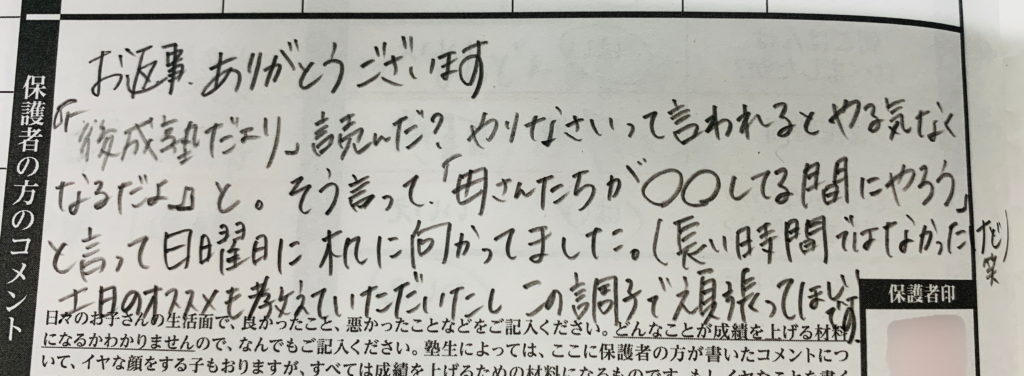 保護者の方のコメント
お返事、ありがとうございます
『「後成塾だより」読んだ？やりなさいって言われるとやる気なく
なるだよ』と。そう言って、「母さんたちが〇〇してる間にやろう」
と言って日曜日に机に向かってました。（長い時間ではなかったけど）笑
土日のオススメも教えていただいたし この調子で頑張ってほしいです。
保護者印
日々のお子さんの生活面で、良かったこと、悪かったことなどをご記入ください。どんなことが成績を上げる材料
になるかわかりませんので、なんでもご記入ください。塾生によっては、ここに保護者の方が書いたコメントにつ
いて、イヤな顔をする子もおりますが、すべては成績を上げるための材料になるものです。もしイヤなことを書く